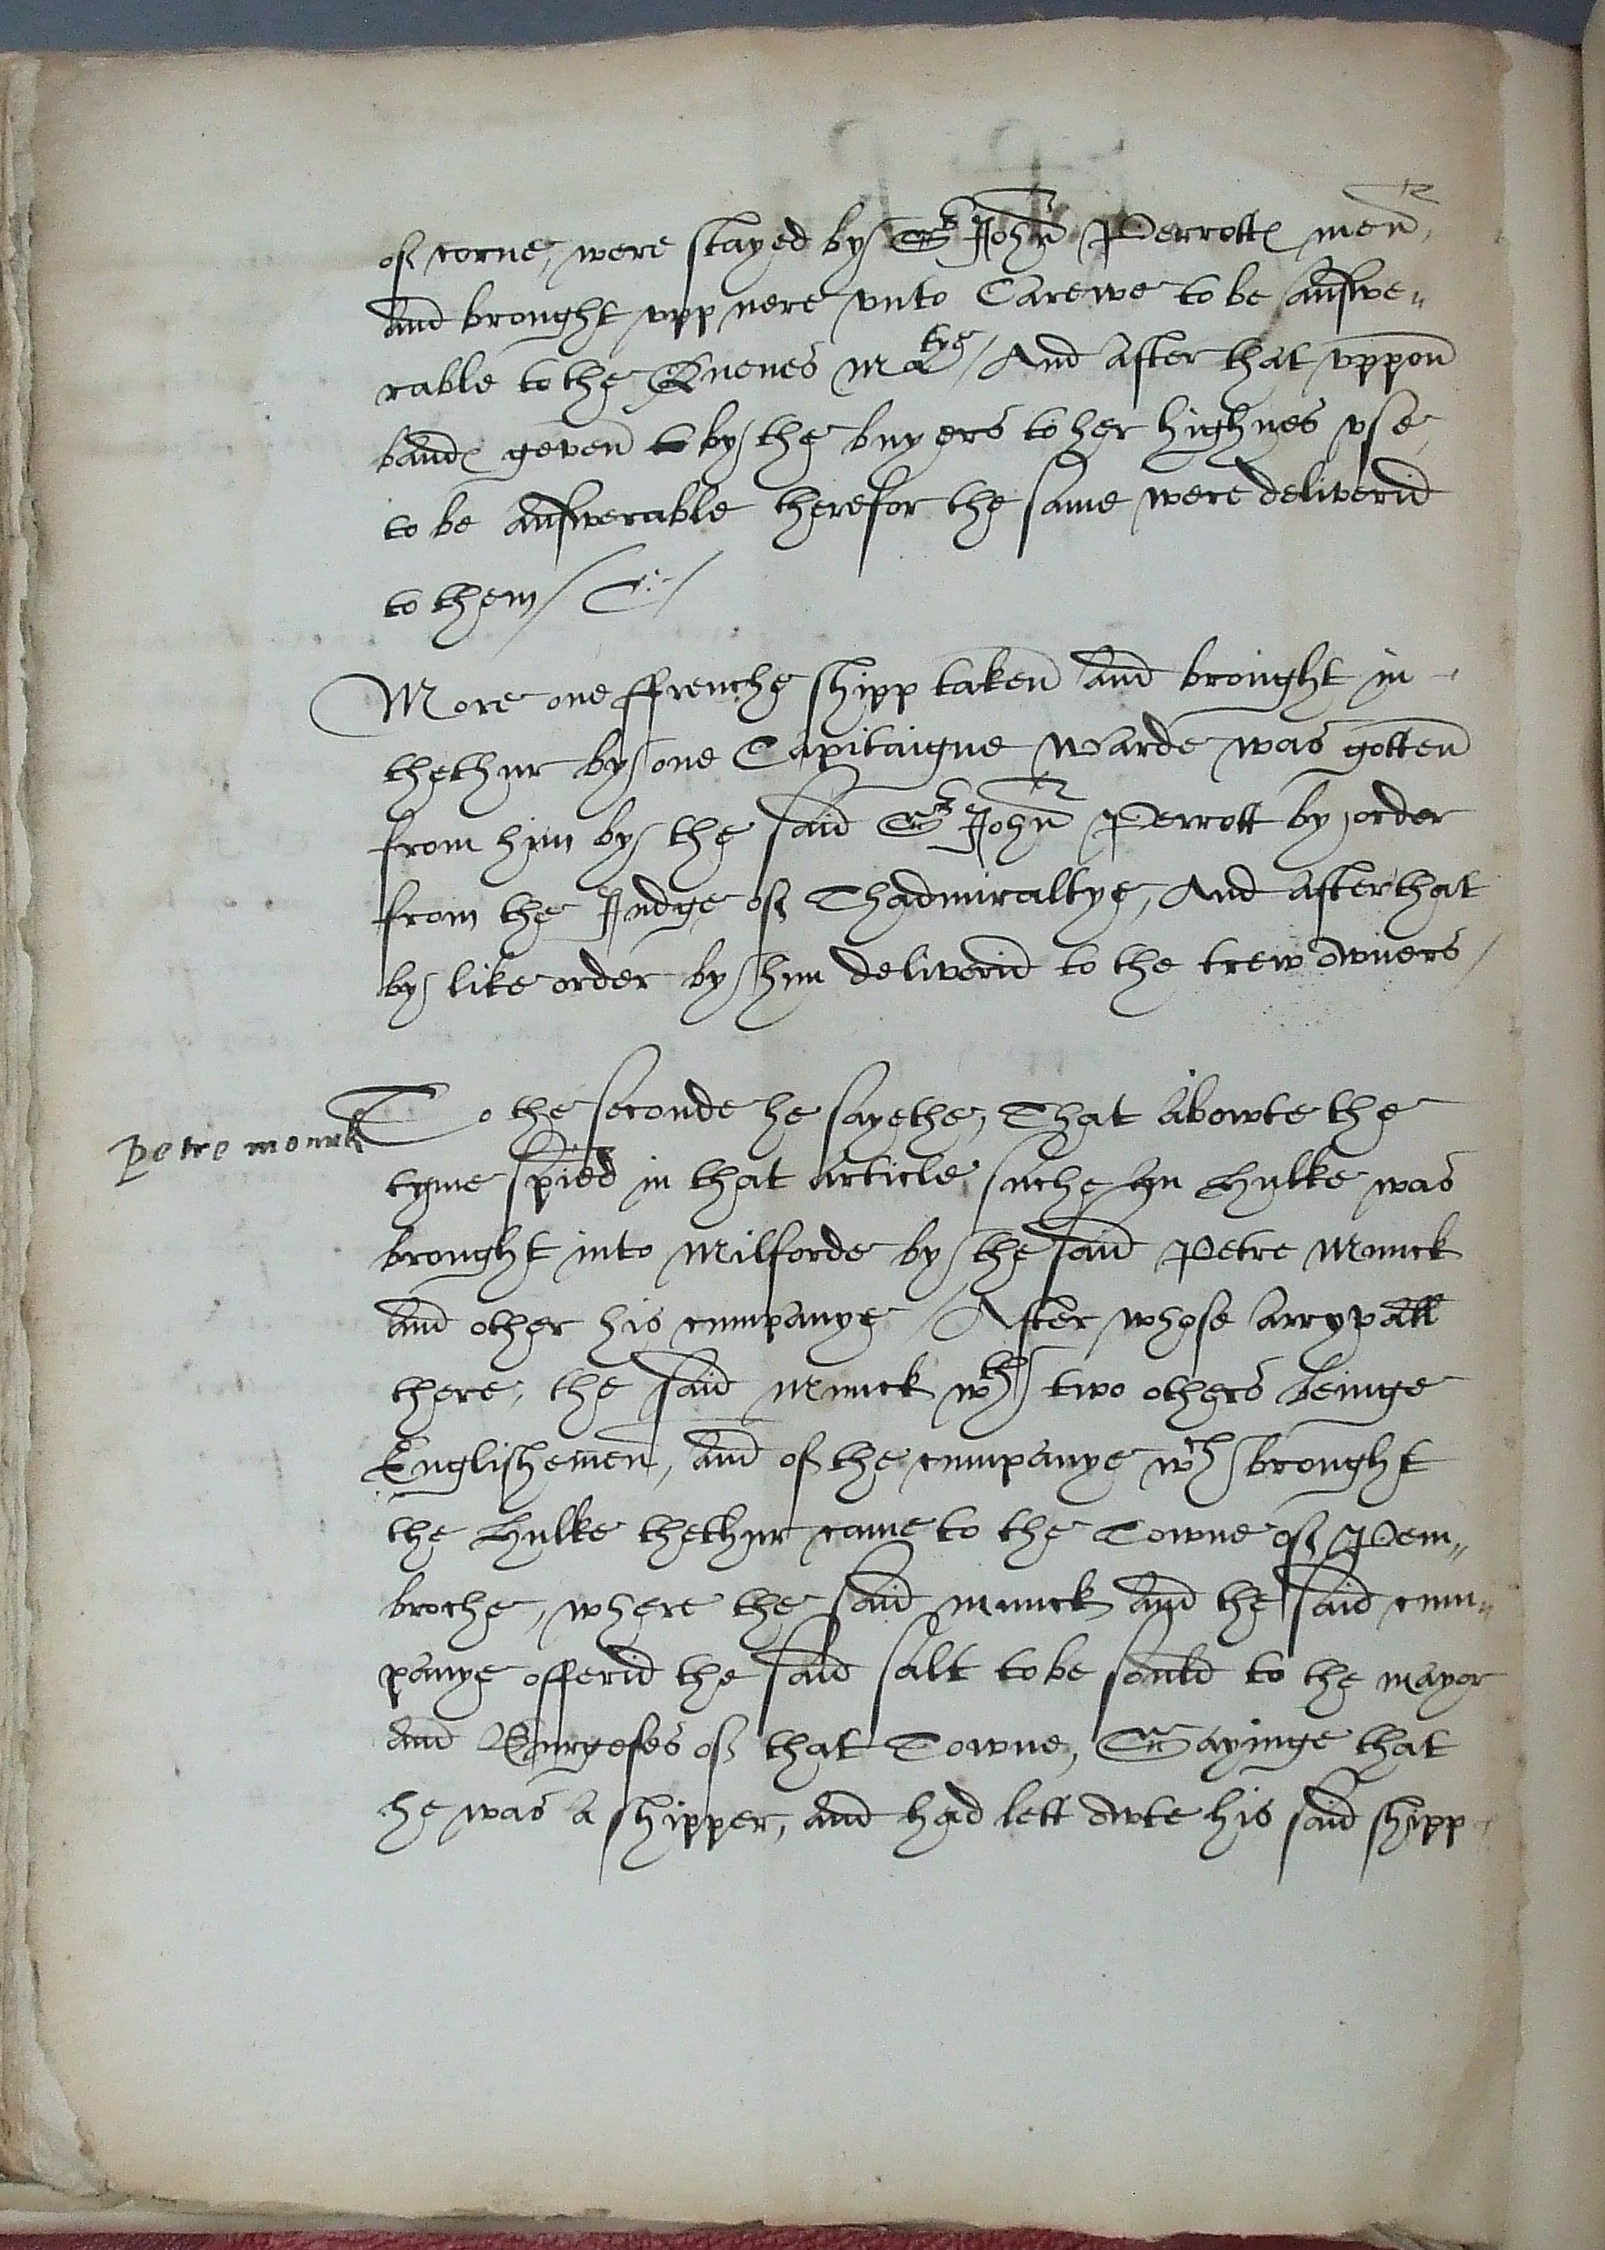 of corne, were stayed by Sr John Perrottes men,
and brought vpp nere vnto Carewe to be answe„
rable to the Quenes Matye / And after that vppon
bandes geven by the buyers to her highnes vse
to be answerable therefor the same were deliverid
to them /
More one ffrenche shipp taken and brought in
thethur by one Capitaigne Warde was gotten
from hym by the said Sr John Perrott by order
from the Judge of Thadmiraltye, And after that
by like order by hym deliverid to the trew owners /
Petre Mounk
To the seconde he sayethe, That abowte the
tyme spied in that article suche an Hulke was
brought into Milforde by the said Petre Munck
and other his cumpanye / After whose arryvall
there, the said Munck wth two others beinge
Englishemen, and of the cumpanye wch brought
the Hulke thethur came to the Towne of Pem„
broche, where the said Munck and the said cum„
panye offerid the said salt to be sould to the mayor
and Burgeses of that Towne, Sayinge that
he was a shipper, and had lett owte his said shipp